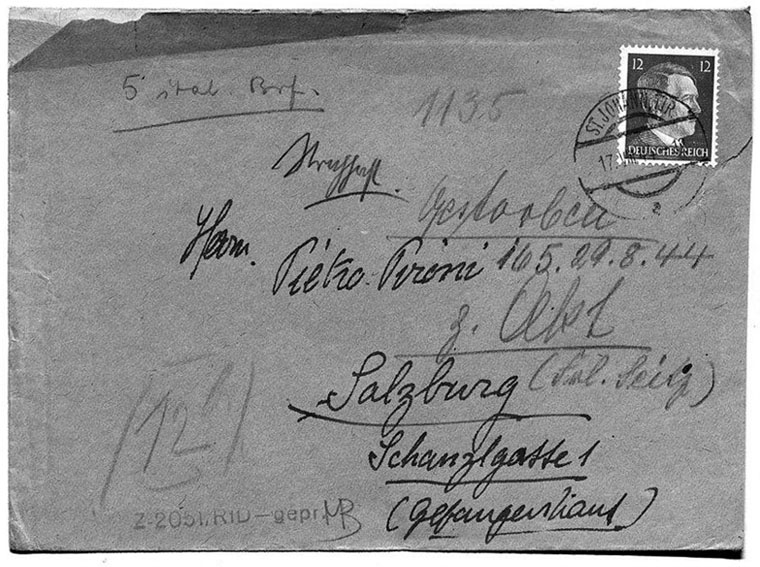 5 ital. Brf.
1135
12 12
ST. JOHANN, TIR.
DEUTSCHES REICH
17.
a
Gestorben
Herrn.
Pietro Pironi 165. 29.8.44
z. Akt
Salzburg
Schanzlgasse 1
(Gefangenhaus)
(12)
Z-2051. RID-gepr.